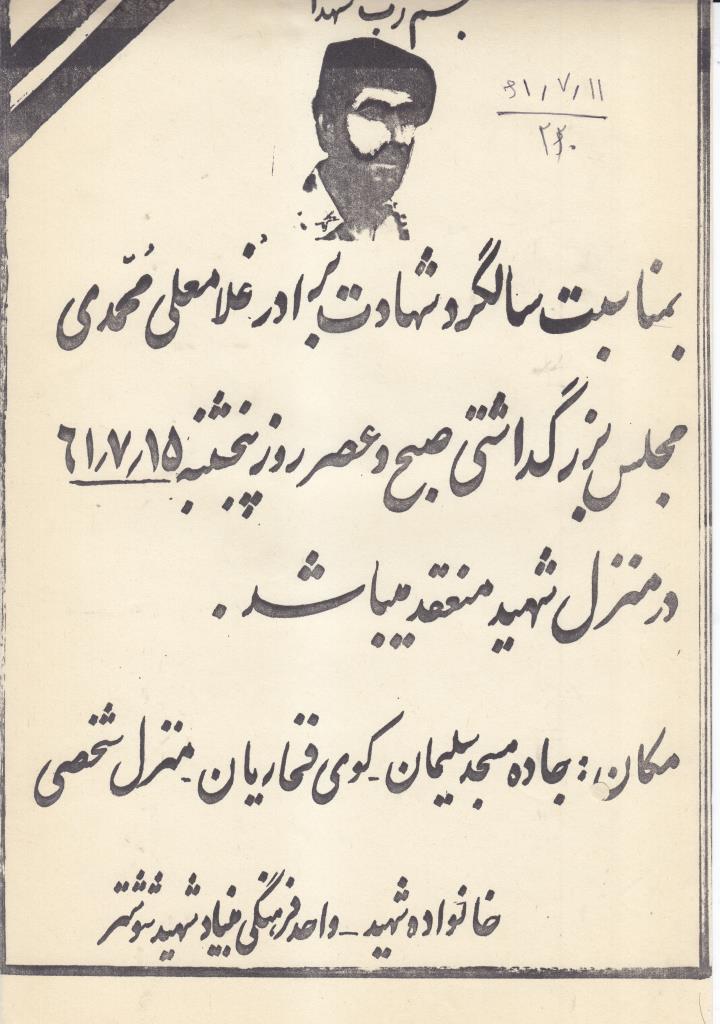 بسم رب شهدا
۶۱/۷/۱۱
۲۴۰
بمناسبت سالگرد شهادت برادر غلامعلی محمدی
مجلس بزرگداشتی صبح و عصر روز پنجشنبه ۶۱/۷/۱۵
در منزل شهید منعقد میباشد.
مکان: جاده مسجد سلیمان - کوی قماریان - منزل شخصی
خانواده شهید - واحد فرهنگی بنیاد شهید شوشتر